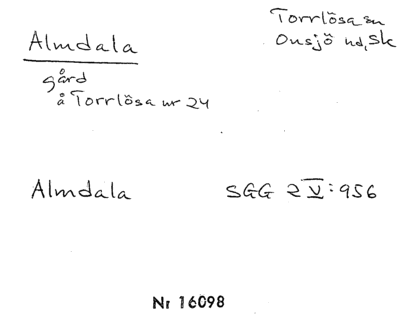 Almdala
Torrlösa sn
Onsjö hd, Sk
gård
å Torrlösa nr 24
Almdala
SGG 2 V:956
Nr 16098